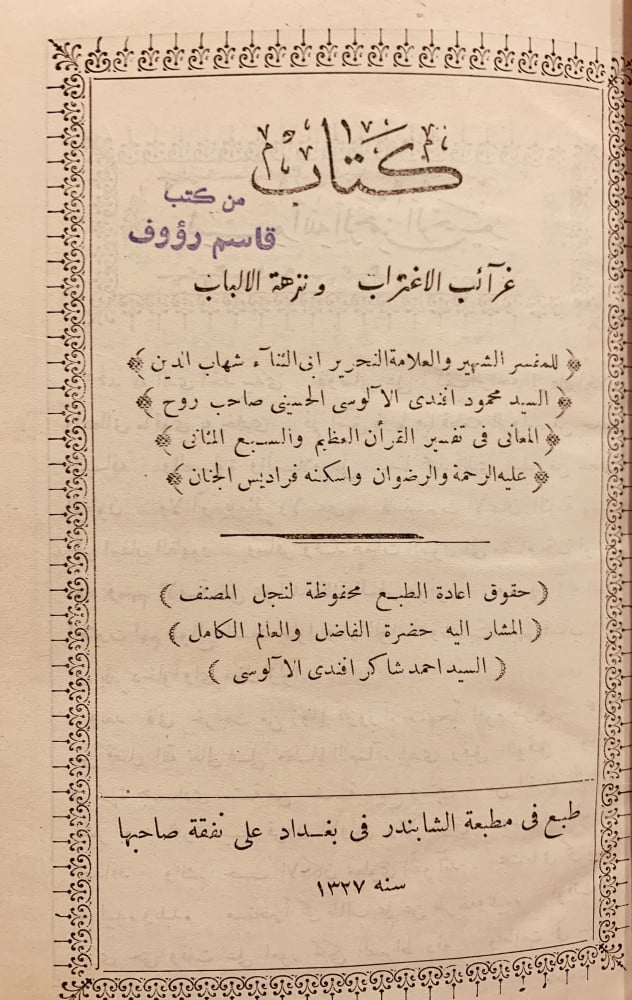 كتاب
من كتب
قاسم رؤوف
غرآئب الاغتراب ونزهة الالباب
﴿ للمفسر الشهير والعلامة النحرير ابى الثنآء شهاب الدين ﴾
﴿ السيد محمود افندى الآلوسى الحسينى صاحب روح ﴾
﴿ المعانى فى تفسير القرأن العظيم والسبع المثانى ﴾
﴿ عليه الرحمة والرضوان واسكنه فراديس الجنان ﴾
( حقوق اعادة الطبع محفوظة لنجل المصنف )
( المشار اليه حضرة الفاضل والعالم الكامل )
( السيد احمد شاكر افندى الآلوسى )
طبع فى مطبعة الشابندر فى بغداد على نفقة صاحبها
سنه ١٣٢٧